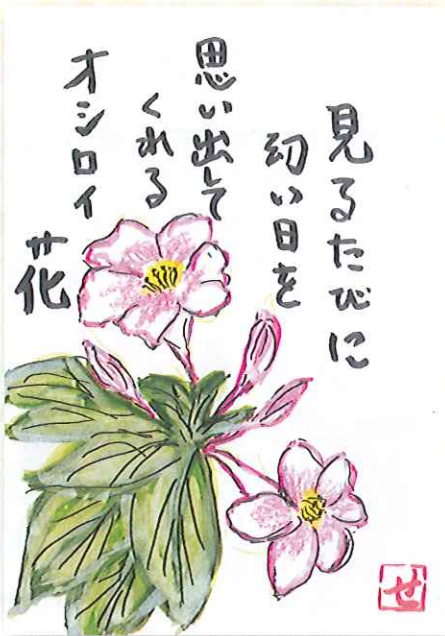 見るたびに
幼い日を
思い出して
くれる
オシロイ
花
せ